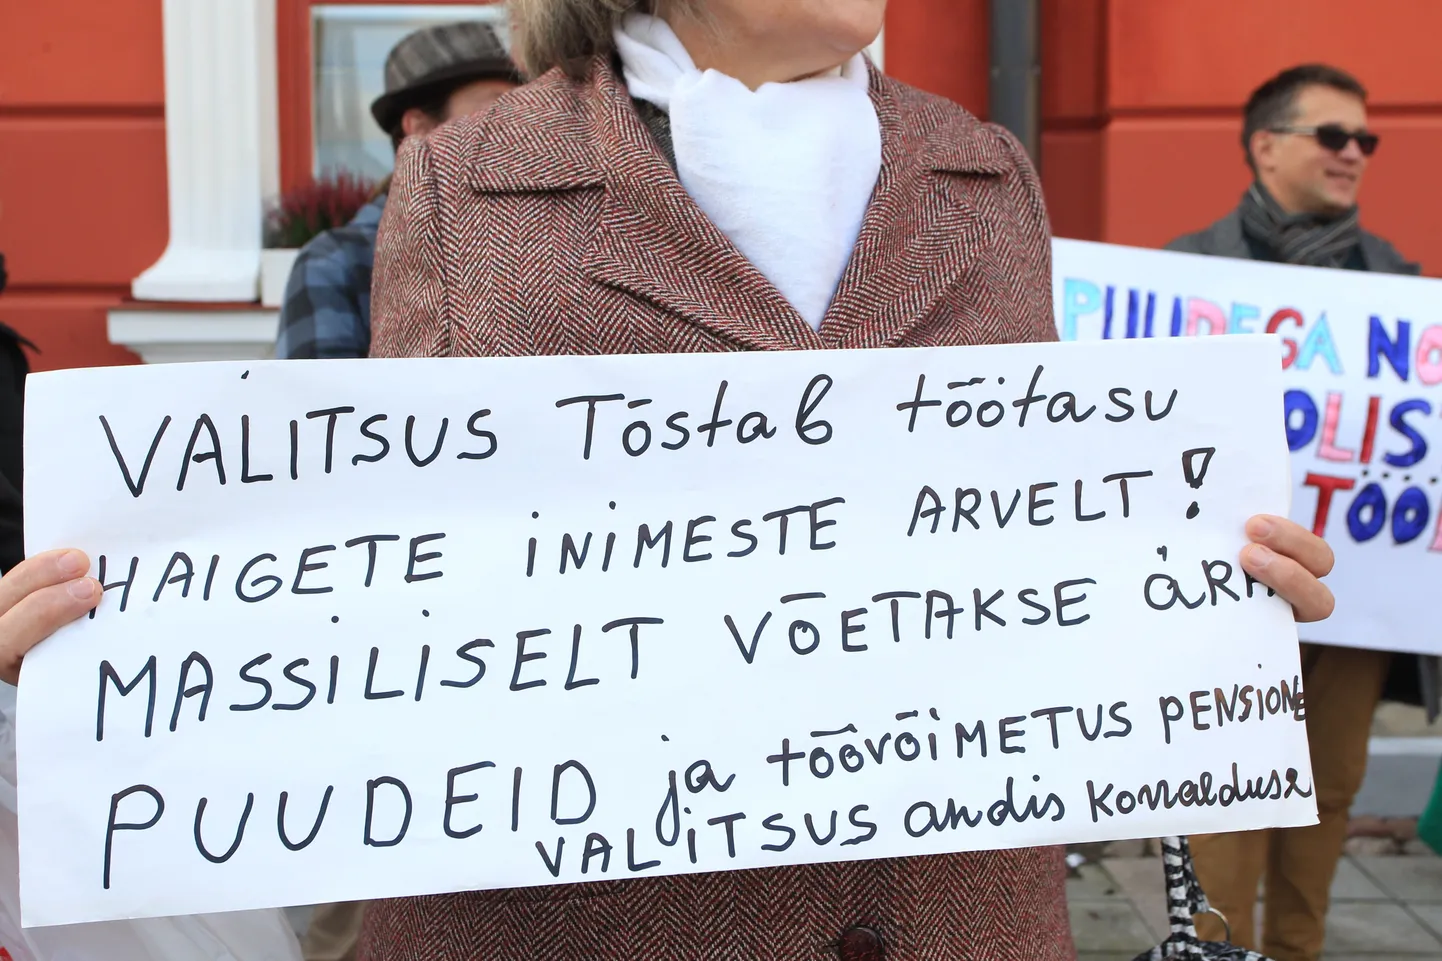 VALITSUS Tõstab töötasu
HAIGETE iNiMESTE ARVELT!
MASSiLiSELT VÕETAKSE äRA
PUUDEID ja töövõiMETUS PENSIONE
VALiTSUS andis korralduse
PUUDEGA
TÖÖ